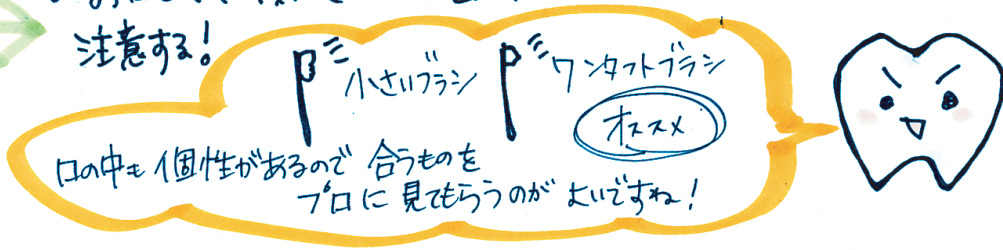 注意する!
小さいブラシ
ワンタフトブラシ
オススメ
口の中も個性があるので 合うものを
プロに見てもらうのが よいですね!